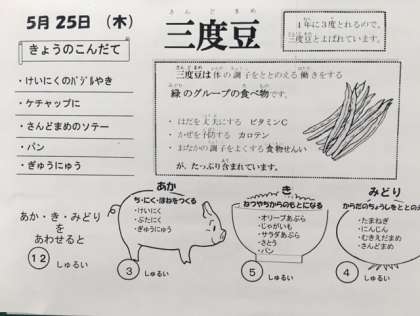 5月25日 (木)
きょうのこんだて
・けいにくのバジルやき
・ケチャップに
・さんどまめのソテー
・パン
・ぎゅうにゅう
さんどまめ
三度豆
1年に3度とれるので、
三度豆とよばれています。
三度豆は体の調子をととのえる働きをする
緑のグループの食べ物です。
・はだを丈夫にする ビタミンC
・かぜを予防する カロテン
・おなかの調子をよくする食物せんい
が、たっぷり含まれています。
あか
ち・にく・ほねをつくる
・けいにく
・ぶたにく
・ぎゅうにゅう
3 しゅるい
き
ねつやちからのもとになる
・オリーブあぶら
・じゃがいも
・サラダあぶら
・さとう
・パン
5 しゅるい
みどり
からだのちょうしをととの
・たまねぎ
・にんじん
・むきえだまめ
・さんどまめ
4 しゅるい
あか・き・みどり
を
あわせると
12 しゅるい